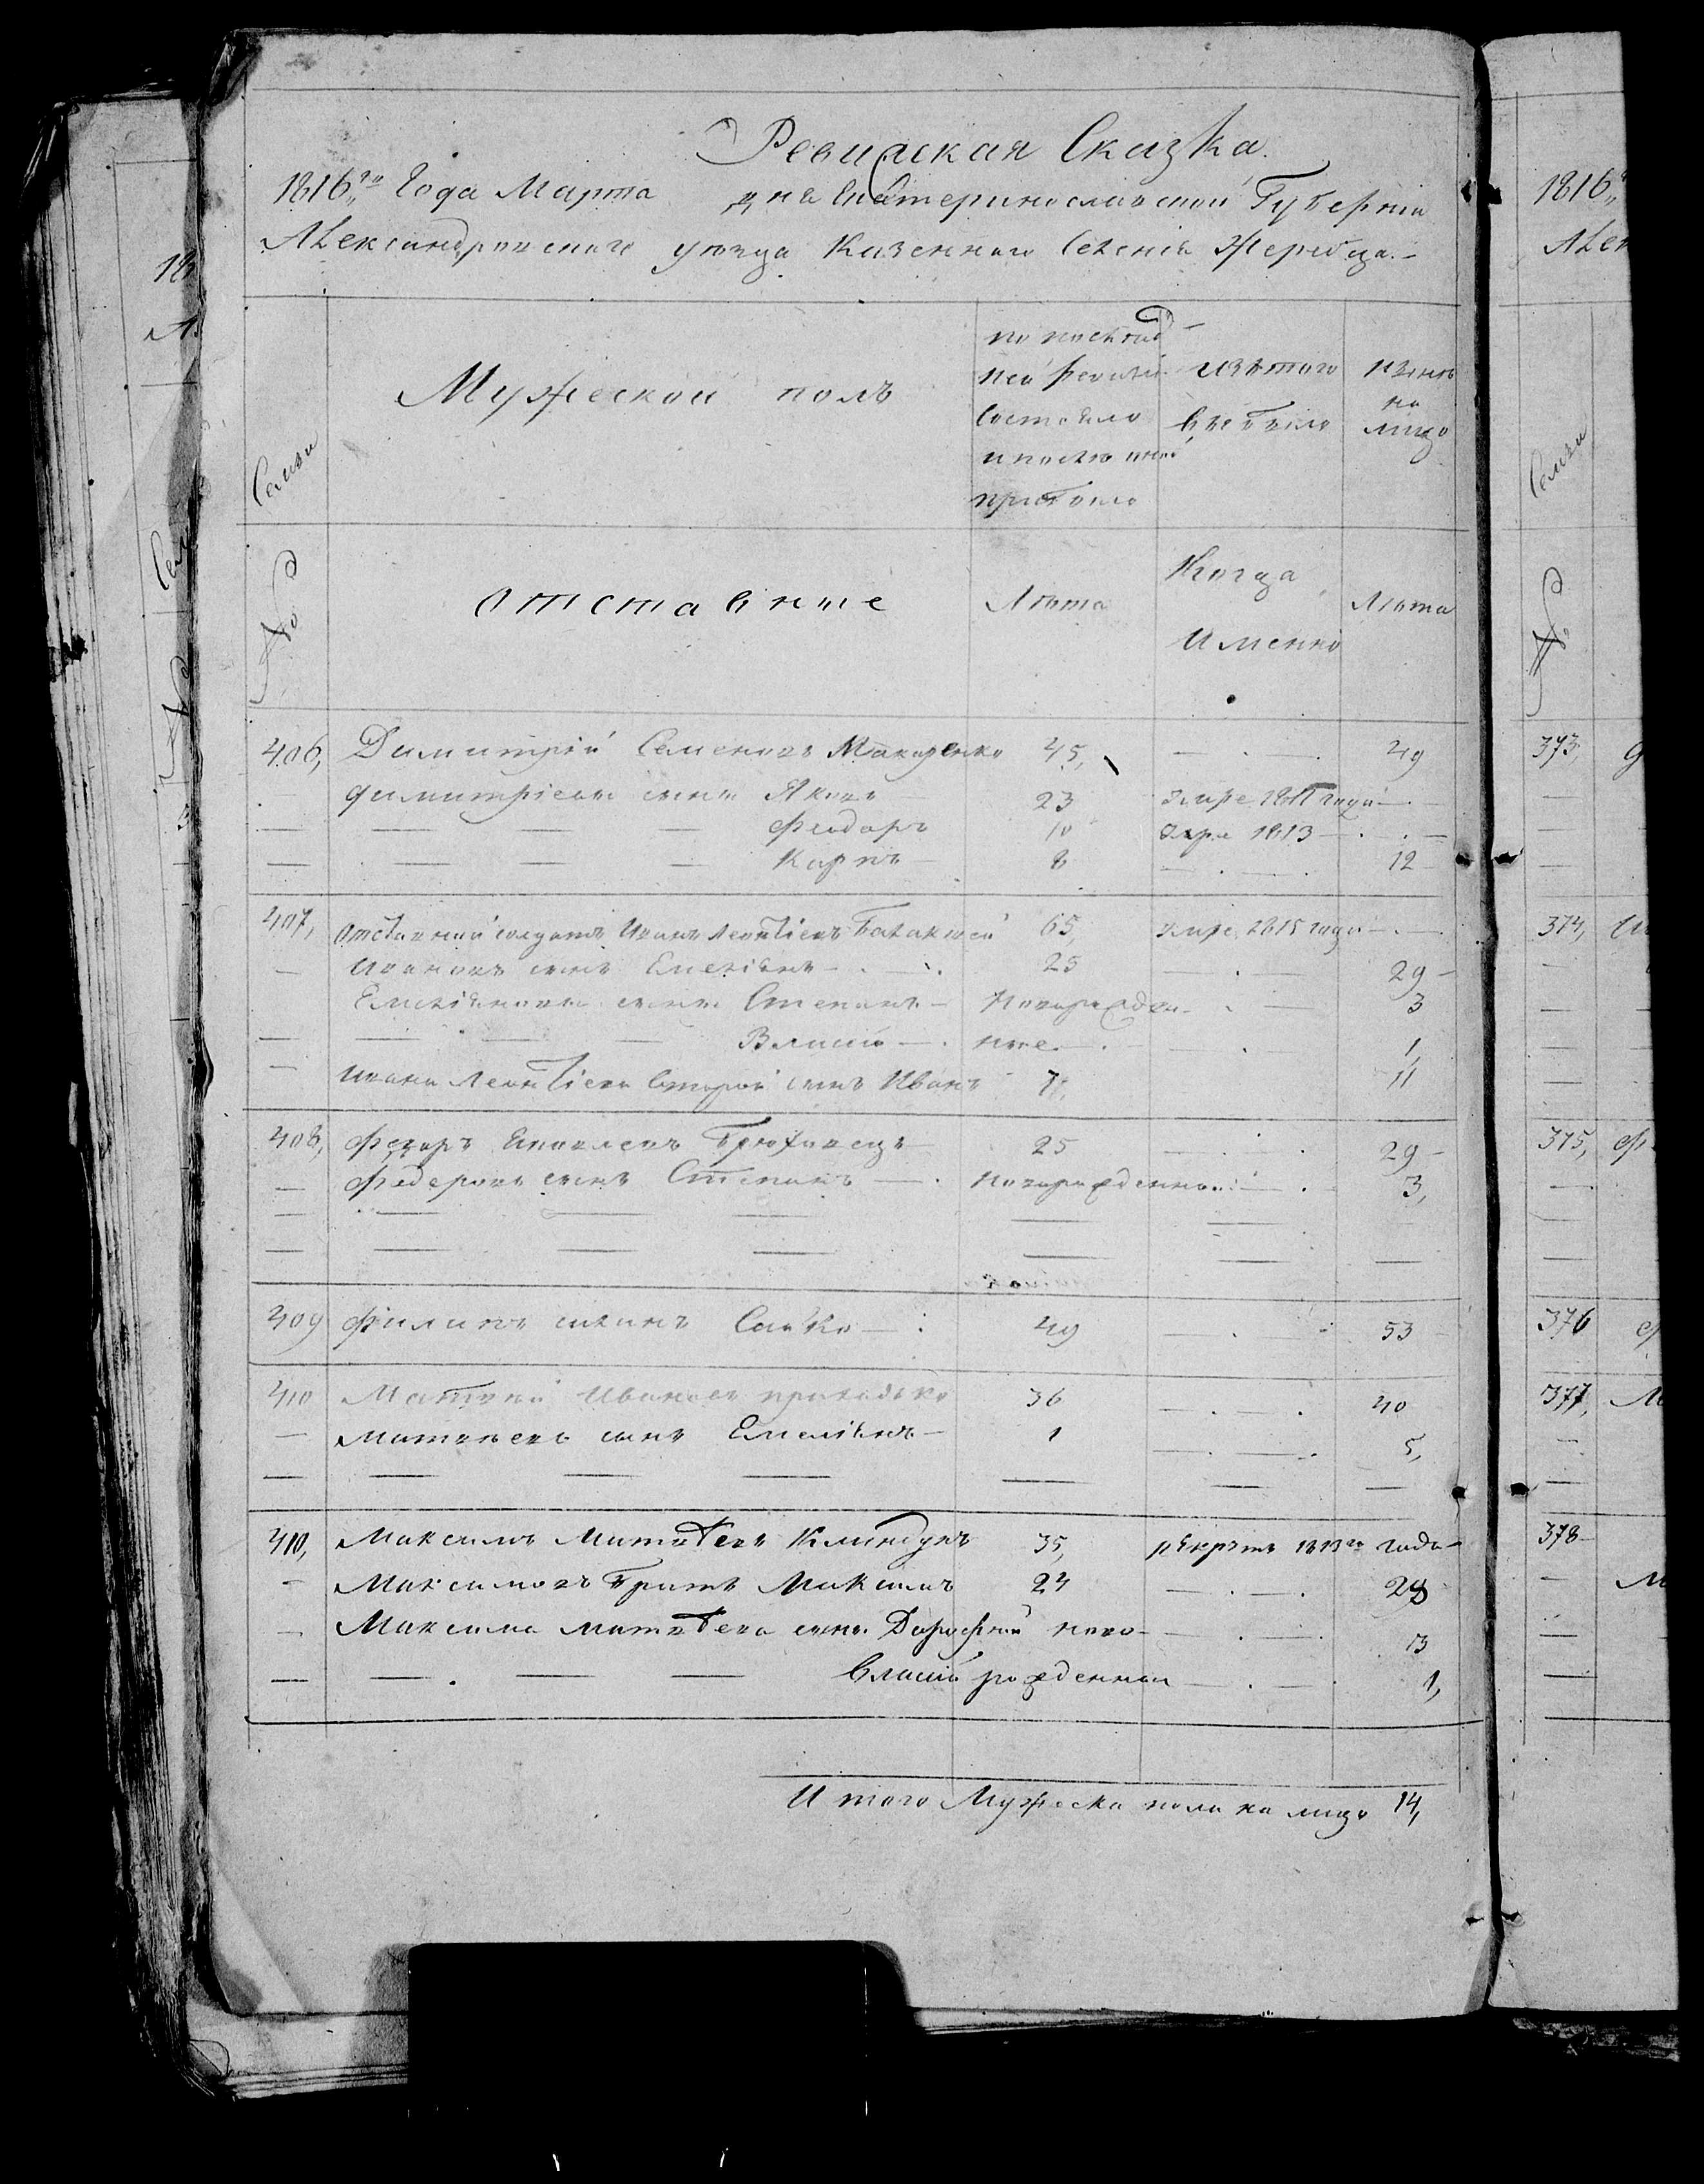 Ревиская Сказка.
1816го Года Марта дня Екатеринославской Губерніи
Александровского уѣзда Казенного Селенія Жеребца.
Семьи
Мужеской полъ
по послѣд
ней ревизіи
состояло
и послѣ оной
прибыло
изъ того
выбыло
нынѣ
на
лицо
№
отставные
Лѣта
Когда
Именно
Лѣта
406, Димитрій Семеновъ Макаренко 45, 49
Димитріевы сыны Яковъ 23 умре 1811 года
Феодоръ 10 умре 1813
Карпъ 8 12
407, отставной солдатъ Иванъ Леонтіевъ 65, умре 1815 года
Ивановъ сынъ Емеліянъ 25 29
Емеліяновы сыны Степанъ Новорожден 3
Власій ные 1
Ивана Леонтіева второй сынъ Иванъ 7, 11
408, Федоръ Яковлевъ Брюховецъ 25 29
Федоровъ сынъ Степанъ Новорожденной 3,
409 Филипъ Савко 49 53
410 Матвей Ивановъ приходько 36 40
Матвеевъ сынъ Емеліянъ 1 5,
410, Максимъ Матвеевъ 35, рекрутъ 1813го года
Максимовъ братъ Максимъ 24 28
Максима Матвеева сыны Дорофей ново 3
Власій рожденныи 1,
Итого Мужеска пола на лицо 14,
1816
Алек
Семьи
№
373,
374,
375,
376
377,
378